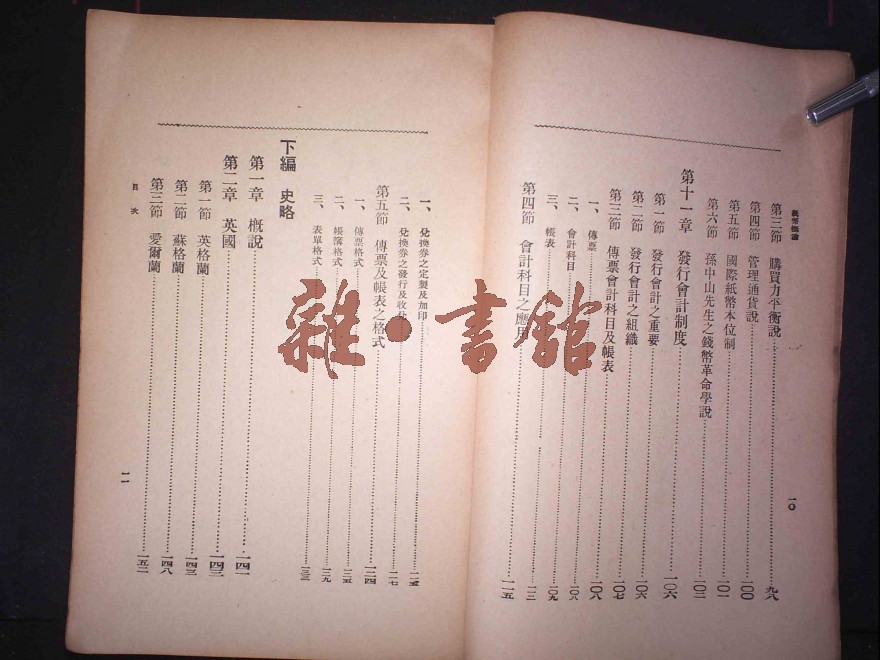 第三節　購買力平衡說……九八
第四節　管理通貨說……一〇〇
第五節　國際紙幣本位制……一〇一
第六節　孫中山先生之錢幣革命學說……一〇二
第十一章　發行會計制度……一〇六
第一節　發行會計之重要……一〇六
第二節　發行會計之組織……一〇六
第三節　傳票會計科目及帳表……一〇七
一、傳票……一〇八
二、會計科目……一〇八
三、帳表……一〇九
第四節　會計科目之應用……一一五
一〇
一、兌換券之定製及加印……一二五
二、兌換券之發行及收
第五節　傳票及帳表之格式……一三四
一、傳票格式
二、帳簿格式……一三五
三、表單格式
下編　史略
第一章　概說……一四一
第二章　英國……一四三
第一節　英格蘭……一四三
第二節　蘇格蘭……一四八
第三節　愛爾蘭……一五二
目次
一一
雜·書館